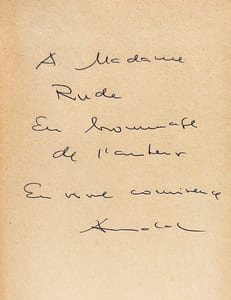 A Madame
Rude
En hommage
de l'auteur
En vive connivence